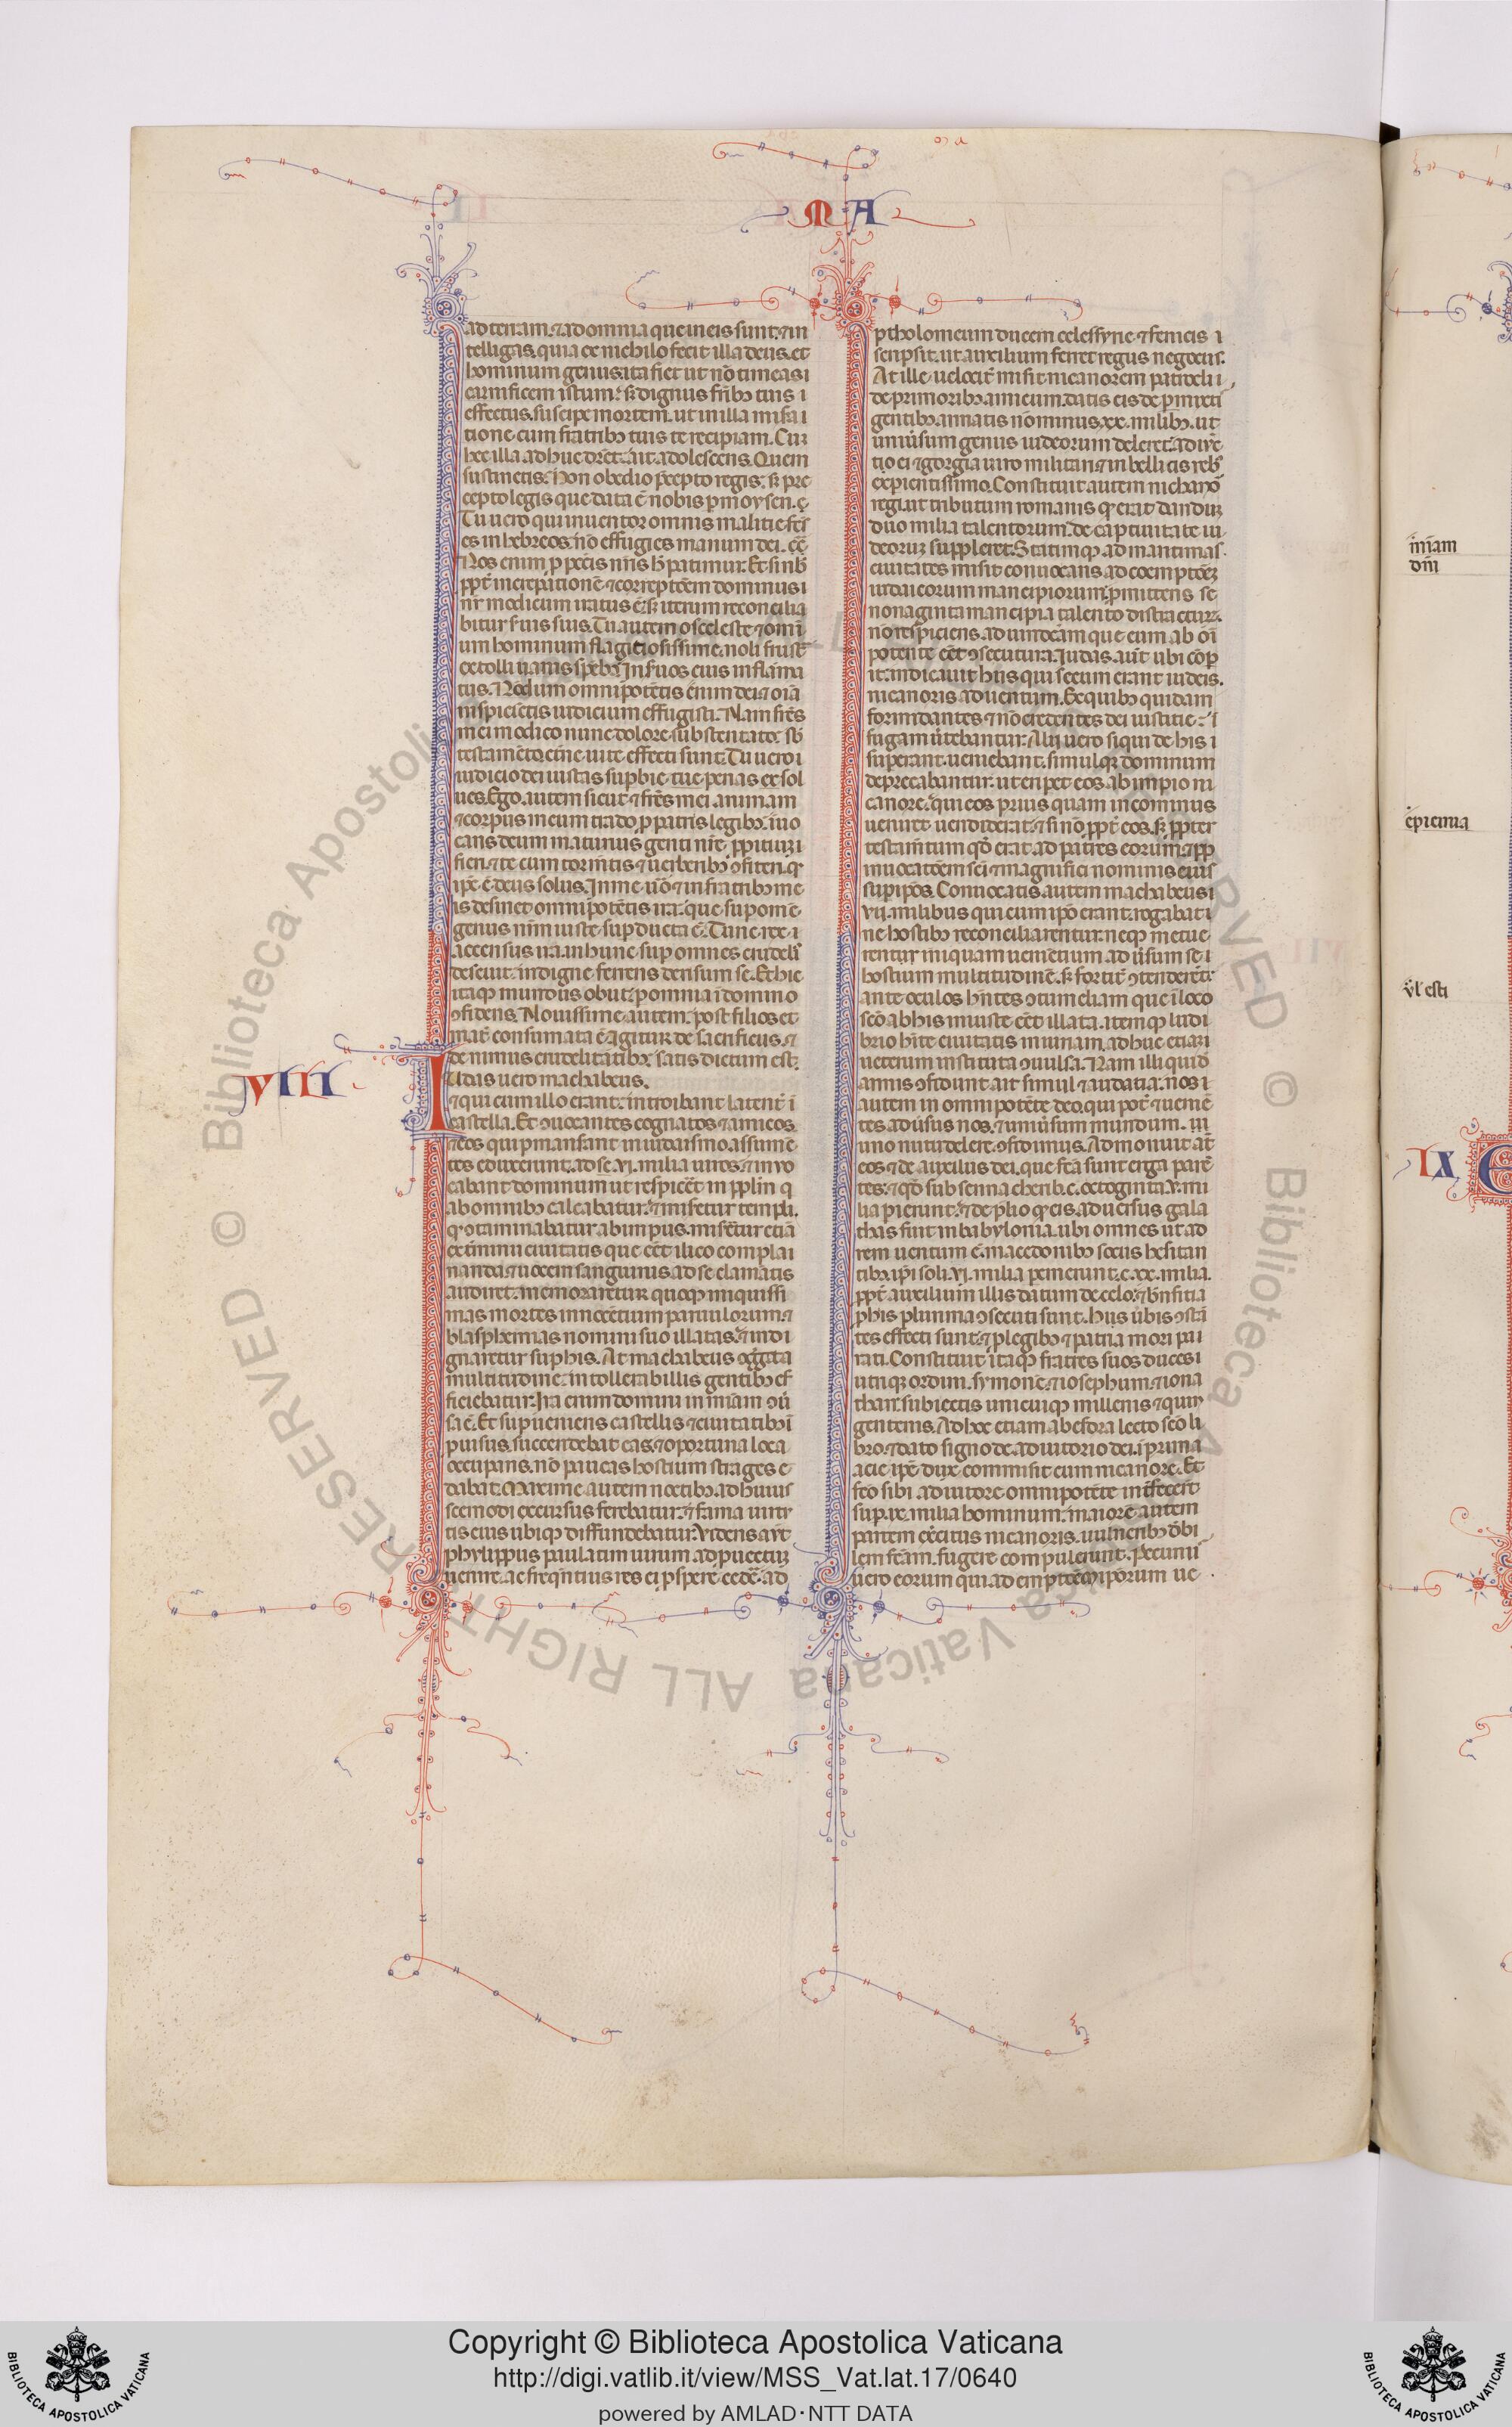 MA
ad terram. ⁊ ad omnia que in eis sunt. ⁊ in
telligas. quia ex nichilo fecit illa deus. et
hominum genus. ita fiet ut nō timeas i
carnificem istum. s; dignus frībꝫ tuis i
effectus. suscipe mortem. ut in illa misa i
tione cum fratribꝫ tuis te recipiam. Cū
hec illa adhuc dr̄et. ait adolescens. Quem
sustinetis. Non obedio p̄cepto regis. s; pre
cepto legis que data ē nobis p moysen.
Tu uero qui inuentor omnis malitie fc̄s
es in hebreos. nō effugies manum dei.
Nos enim p peccīs nr̄is h̄ patimur. Et si nob̄
ppt̄ increpationē ⁊ correptōem dominus i
nr̄ modicum iratus ē. s; iterum reconcilia
bitur seruis suis. Tu autem o sceleste ⁊ omī
um hominum flagitiosissime. noli frust̄
extolli uanis spebꝫ in seruos eius inflāma
tus. Nōdum omnipotētis enim dei. ⁊ oīa
inspiciētis iudicium effugisti. Nam frēs
mei modico nunc dolore sustentato. sb̄
testamēto et̄ne uite effecti sunt. Tu uero i
iudicio dei iustas supbie tue penas exsol
ues. Ego autem sicut ⁊ frēs mei animam
⁊ corpus meum trado p patris legibꝫ. iuo
cans deum maturius genti nr̄e ppitiuꝫ i
fieri. ⁊ te cum torm̄tis ⁊ uerberibꝫ ꝯfiteri. q
ipe ē deus solus. In me ūo ⁊ in fratribꝫ me
is desinet omnipotētis ira. que sup om̄e
genus nr̄m iuste supducta ē. Tunc rex i
accensus ira. in hunc sup omnes crudeliꝰ
deseuit. indigne ferens derisum se. Et hic
itaqꝫ mundus obiit. p omnia ī domino
ꝯfidens. Nouissime autem post filios et
mat̄ consumata ē. Agitur de sacrificiis. ⁊
de nimiis crudelitatibꝫ satis dictum est.
VIII
Iudas uero machabeus.
⁊ qui cum illo erant. introibant latent̄ ī
castella. Et ꝯuocantes cognatos ⁊ amicos.
⁊ eos qui pmanserant in iudaismo. assumē
tes eduxerunt ad se .vi. milia uiros. ⁊ inuo
cabant dominum ut respicēt in pplm q
ab omnibꝫ calcabatur. ⁊ misetur templi.
qꝫ ꝯtaminabatur ab impiis. misetur etiā
exterminii ciuitatis que eēt ilico complai
nanda. ⁊ uocem sanguinis ad se clamātis
audiret. memoraretur quoqꝫ iniquissi
mas mortes innocētium paruulorum. ⁊
blasphemias nomini suo illatas. ⁊ indi
gnaretur sup his. At machabeus ꝯg̃gata
multitudine. intollerabilis gentibꝫ ef
ficiebatur. Ira enim domini in mīam ꝯū
sa ē. Et supueniens castellis ⁊ ciuitatibꝫ ī
puisus. succendebat eas. ⁊ oportuna loca
occupans. nō paucas hostium strages e
dabat. Maxime autem noctibꝫ ad huius
scemodi excursus ferebatur. ⁊ fama uirtu
tis eius ubiqꝫ diffundebatur. Videns aūt
phylippus paulatim uirum ad pfectuꝫ
uenire. ac freq̄ntius res ei pspere cedē. ad
ptholomeum ducem celessyrie ⁊ fenicis i
scripsit. ut auxilium ferret regiis negociis.
At ille uelocit̄ misit nicanorem patrocli i
de primoribꝫ amicum. datis eis de pmixti
gentibꝫ armatis nō minus .xx. milibꝫ. ut
uniūsum genus iudeorum deleret. adiūc
to ei ⁊ gorgia uiro militari ⁊ in bellicis rebꝰ
expientissimo. Constituit autem nichanō
regi. ut tributum romanis q erat danduꝫ
duo milia talentorum. de captiuitate iu
deoruꝫ suppleret. Statimqꝫ ad maritimas
ciuitates misit conuocans ad coemptōeꝫ
iudaicorum mancipiorum. pmittens se
nonaginta mancipia talento distracturꝫ.
nō respiciens ad uindcām que eum ab oī
potente eēt ꝯsecutura. Iudas aūt ubi cōp
it. indicauit hiis qui secum erant iudeis.
nicanoris aduentum. Ex quibꝫ quidam
formidantes ⁊ nō credentes dei iustitie ī
fugam ūtebantur. Alii uero si qui de his i
superant. ueniebant. simulqꝫ dominum
deprecabantur. ut eripet eos ab impio ni
canore. qui eos prius quam in cominus
ueniret uendiderat. ⁊ si nō ppt̄ eos. s; ppter
testam̄tum qd̄ erat ad patres eorum. ⁊ pp
inuocatōem sc̄i ⁊ magnifici nominis eius
sup ipos. Conuocatis autem machabeus i
vii. milibus qui cum ipo erant. rogabat i
ne hostibꝫ reconciliarentur. neqꝫ metue
rentur iniquam uenientium adūsum se i
hostium multitudinē. s; fortit̄ ꝯtenderēt
ante oculos hn̄tes ꝯtumeliam que ī loco
sc̄o ab his iniuste eēt illata. itemqꝫ ludi
brio h̄ite ciuitatis iniuriam. adhuc etiaꝫ
ueterum instituta ꝯuulsa. Nam illi quid̄
armis ꝯfidunt ait simul ⁊ audatia. nos i
autem in omnipotēte deo. qui pot̄ ⁊ ueniē
tes adūsus nos. ⁊ uniūsum mundum. in
uno nutu delere. ꝯfidimus. Admonuit at̄
eos ⁊ de auxiliis dei. que fc̄a sunt erga parē
tes. ⁊ qd̄ sub sennacherib .c. octoginta .v. mi
lia pierunt. ⁊ de plio qd̄ eis aduersus gala
thas fuit in babylonia. ubi omnes ut ad
rem uentum ē. macedonibꝫ sociis hesitan
tibꝫ. ipi soli .vi. milia peremerunt .c.xx. milia.
ppt̄ auxilium illis datum de celo. ⁊ bn̄ficia
p his plurima ꝯsecuti sunt. Hiis ūbis ꝯstā
tes effecti sunt. ⁊ p legibꝫ ⁊ patria mori pa
rati. Constituit itaqꝫ fratres suos duces i
utriqꝫ ordini. symonē. ⁊ iosephum. ⁊ iona
than. subiectis unicuiqꝫ millenis ⁊ quin
gentenis. Ad hoc etiam ab esdra lecto sc̄o li
bro. ⁊ dato signo de adiutorio dei. ī prima
acie ipe dux commisit cum nicanore. Et
fc̄o sibi adiutore omnipotēte. inṯfecert̄
sup .ix. milia hominum. maiorē autem
partem exercitus nicanoris. uulneribꝫ debi
lem fc̄am. fugere compulerunt. Pecunii
uero eorum qui ad emptōem ipsorum ue
m̄iam
dn̄i
epicinia
ūl esti
IX
Copyright © Biblioteca Apostolica Vaticana
http://digi.vatlib.it/view/MSS_Vat.lat.17/0640
powered by AMLAD·NTT DATA
BIBLIOTECA APOSTOLICA VATICANA
BIBLIOTECA APOSTOLICA VATICANA